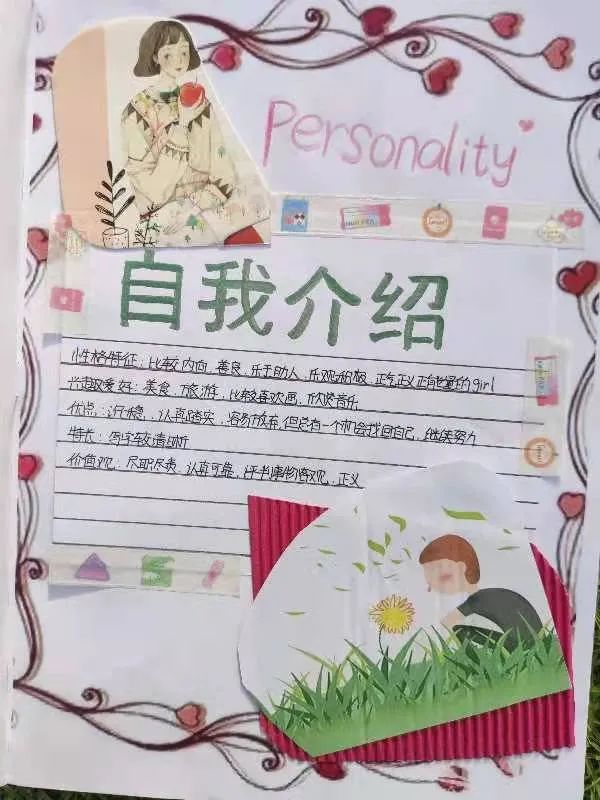 Personality
自我介绍
性格特征：比较内向，善良，乐于助人，乐观积极，正气正义正能量的girl
兴趣爱好：美食，旅游，比较喜欢画，欣赏音乐
优点：沉稳，认真踏实，容易放弃，但总有一个机会找回自己，继续努力
特长：写字较清晰
价值观：尽职尽责，认真可靠，评书事物客观，正义